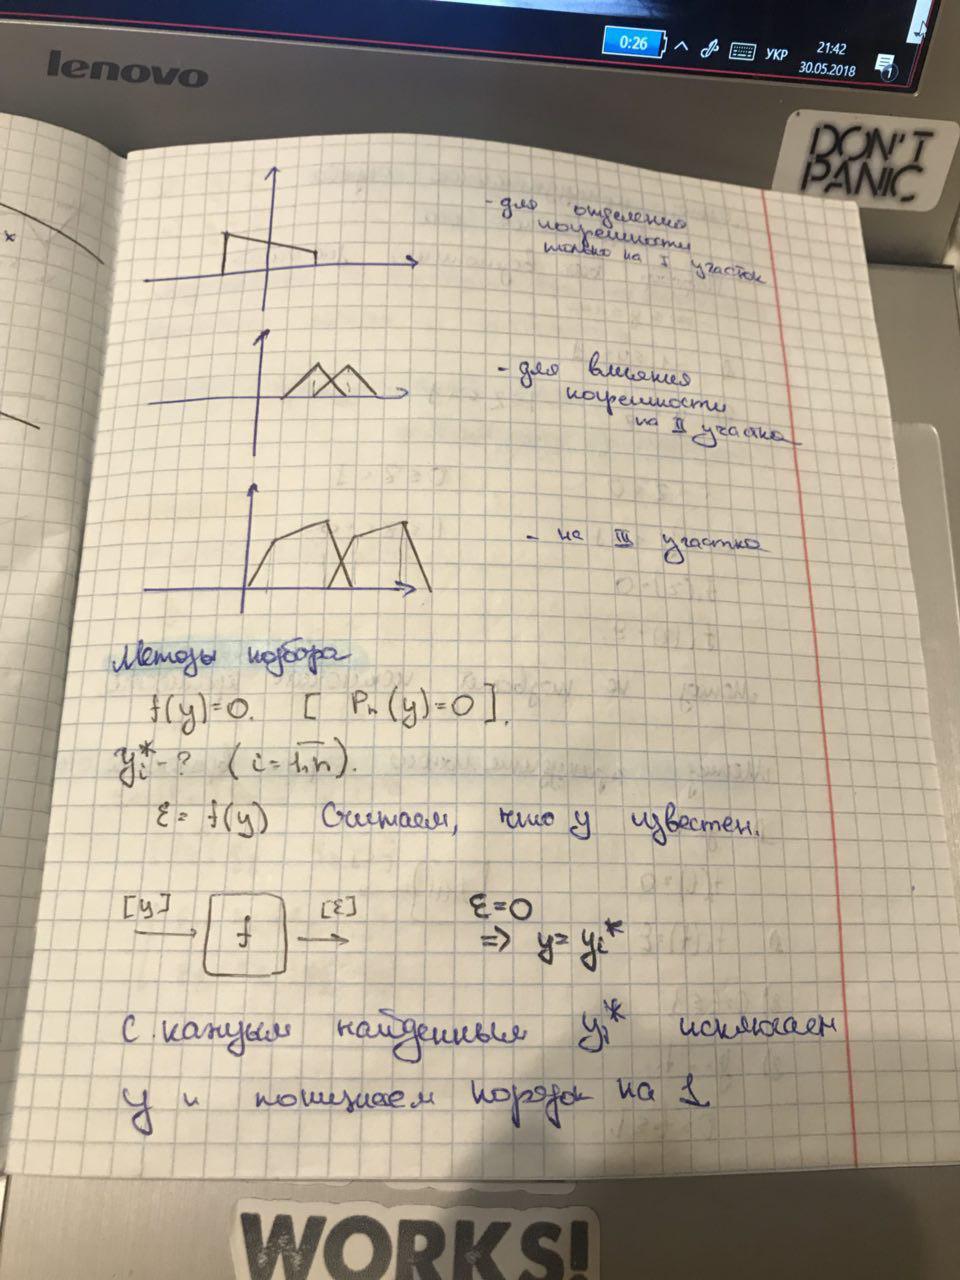 0:26
УКР
21:42
30.05.2018
1
lenovo
DON'T
PANIC
x
- для отделения
погрешности
только на I участок
- для влияния
погрешности
на II участка
- на III участка
Методы подбора
f(y)=0. [ Pn(y)=0 ].
yi* - ? (i=1,n).
ε= f(y) Считаем, что y известен.
[y] f [ε]
ε=0
=> y= yi*
С каждым найденным yi* исключаем
y и понижаем порядок на 1
WORKS!